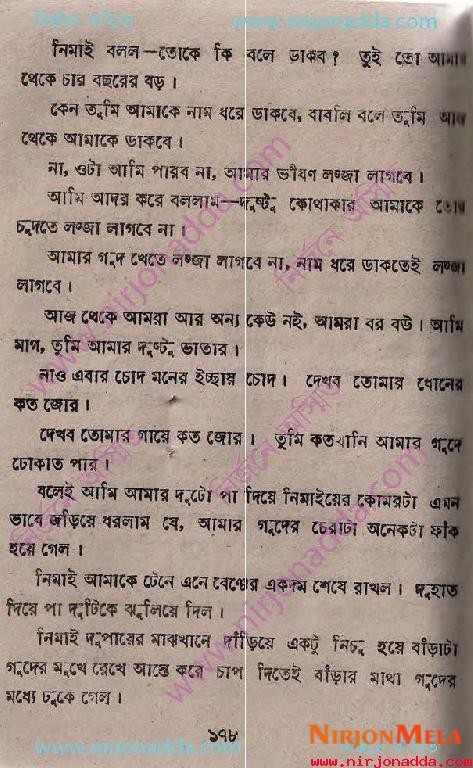 www.nirjonadda.com
নিমাই বলল—তোকে কি বলে ডাকব? তুই তো আমার
থেকে চার বছরের বড়।
কেন তুমি আমাকে নাম ধরে ডাকবে, বাবলি বলে তুমি আজ
থেকে আমাকে ডাকবে।
না, ওটা আমি পারব না, আমার ভীষণ লজ্জা লাগবে।
আমি আদর করে বললাম—দুষ্টু কোথাকার আমাকে তোর
চুদতে লজ্জা লাগবে না।
আমার গুদ খেতে লজ্জা লাগবে না, নাম ধরে ডাকতেই লজ্জা
লাগবে।
আজ থেকে আমরা আর অন্য কেউ নই, আমরা বর বউ। আমি
মাগ, তুমি আমার দুষ্টু ভাতার।
নাও এবার চোদ মনের ইচ্ছায় চোদ। দেখব তোমার ধোনের
কত জোর।
দেখব তোমার গায়ে কত জোর। তুমি কতখানি আমার গুদে
ঢোকাত পার।
বলেই আমি আমার দুটো পা দিয়ে নিমাইয়ের কোমরটা এমন
ভাবে জড়িয়ে ধরলাম যে, আমার গুদের চেরাটা অনেকটা ফাঁক
হয়ে গেল।
নিমাই আমাকে টেনে এনে বেঞ্চের একদম শেষে রাখল। দুহাত
দিয়ে পা দুটিকে ঝুলিয়ে দিল।
নিমাই দুপায়ের মাঝখানে দাঁড়িয়ে একটু নিচু হয়ে বাঁড়াটা
গুদের মুখে রেখে আস্তে করে চাপ দিতেই বাঁড়ার মাথা গুদের
মধ্যে ঢুকে গেল।
১৭৮
NIRJONMELA
www.nirjonadda.com
www.nirjonadda.com